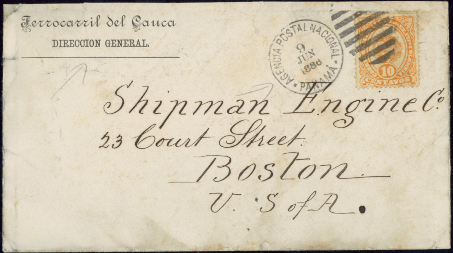 Ferrocarril del Cauca
DIRECCION GENERAL.
AGENCIA POSTAL NACIONAL
9
JUN
1886
PANAMA
10
Shipman Engine Co.
23 Court Street.
Boston.
U. S of A.